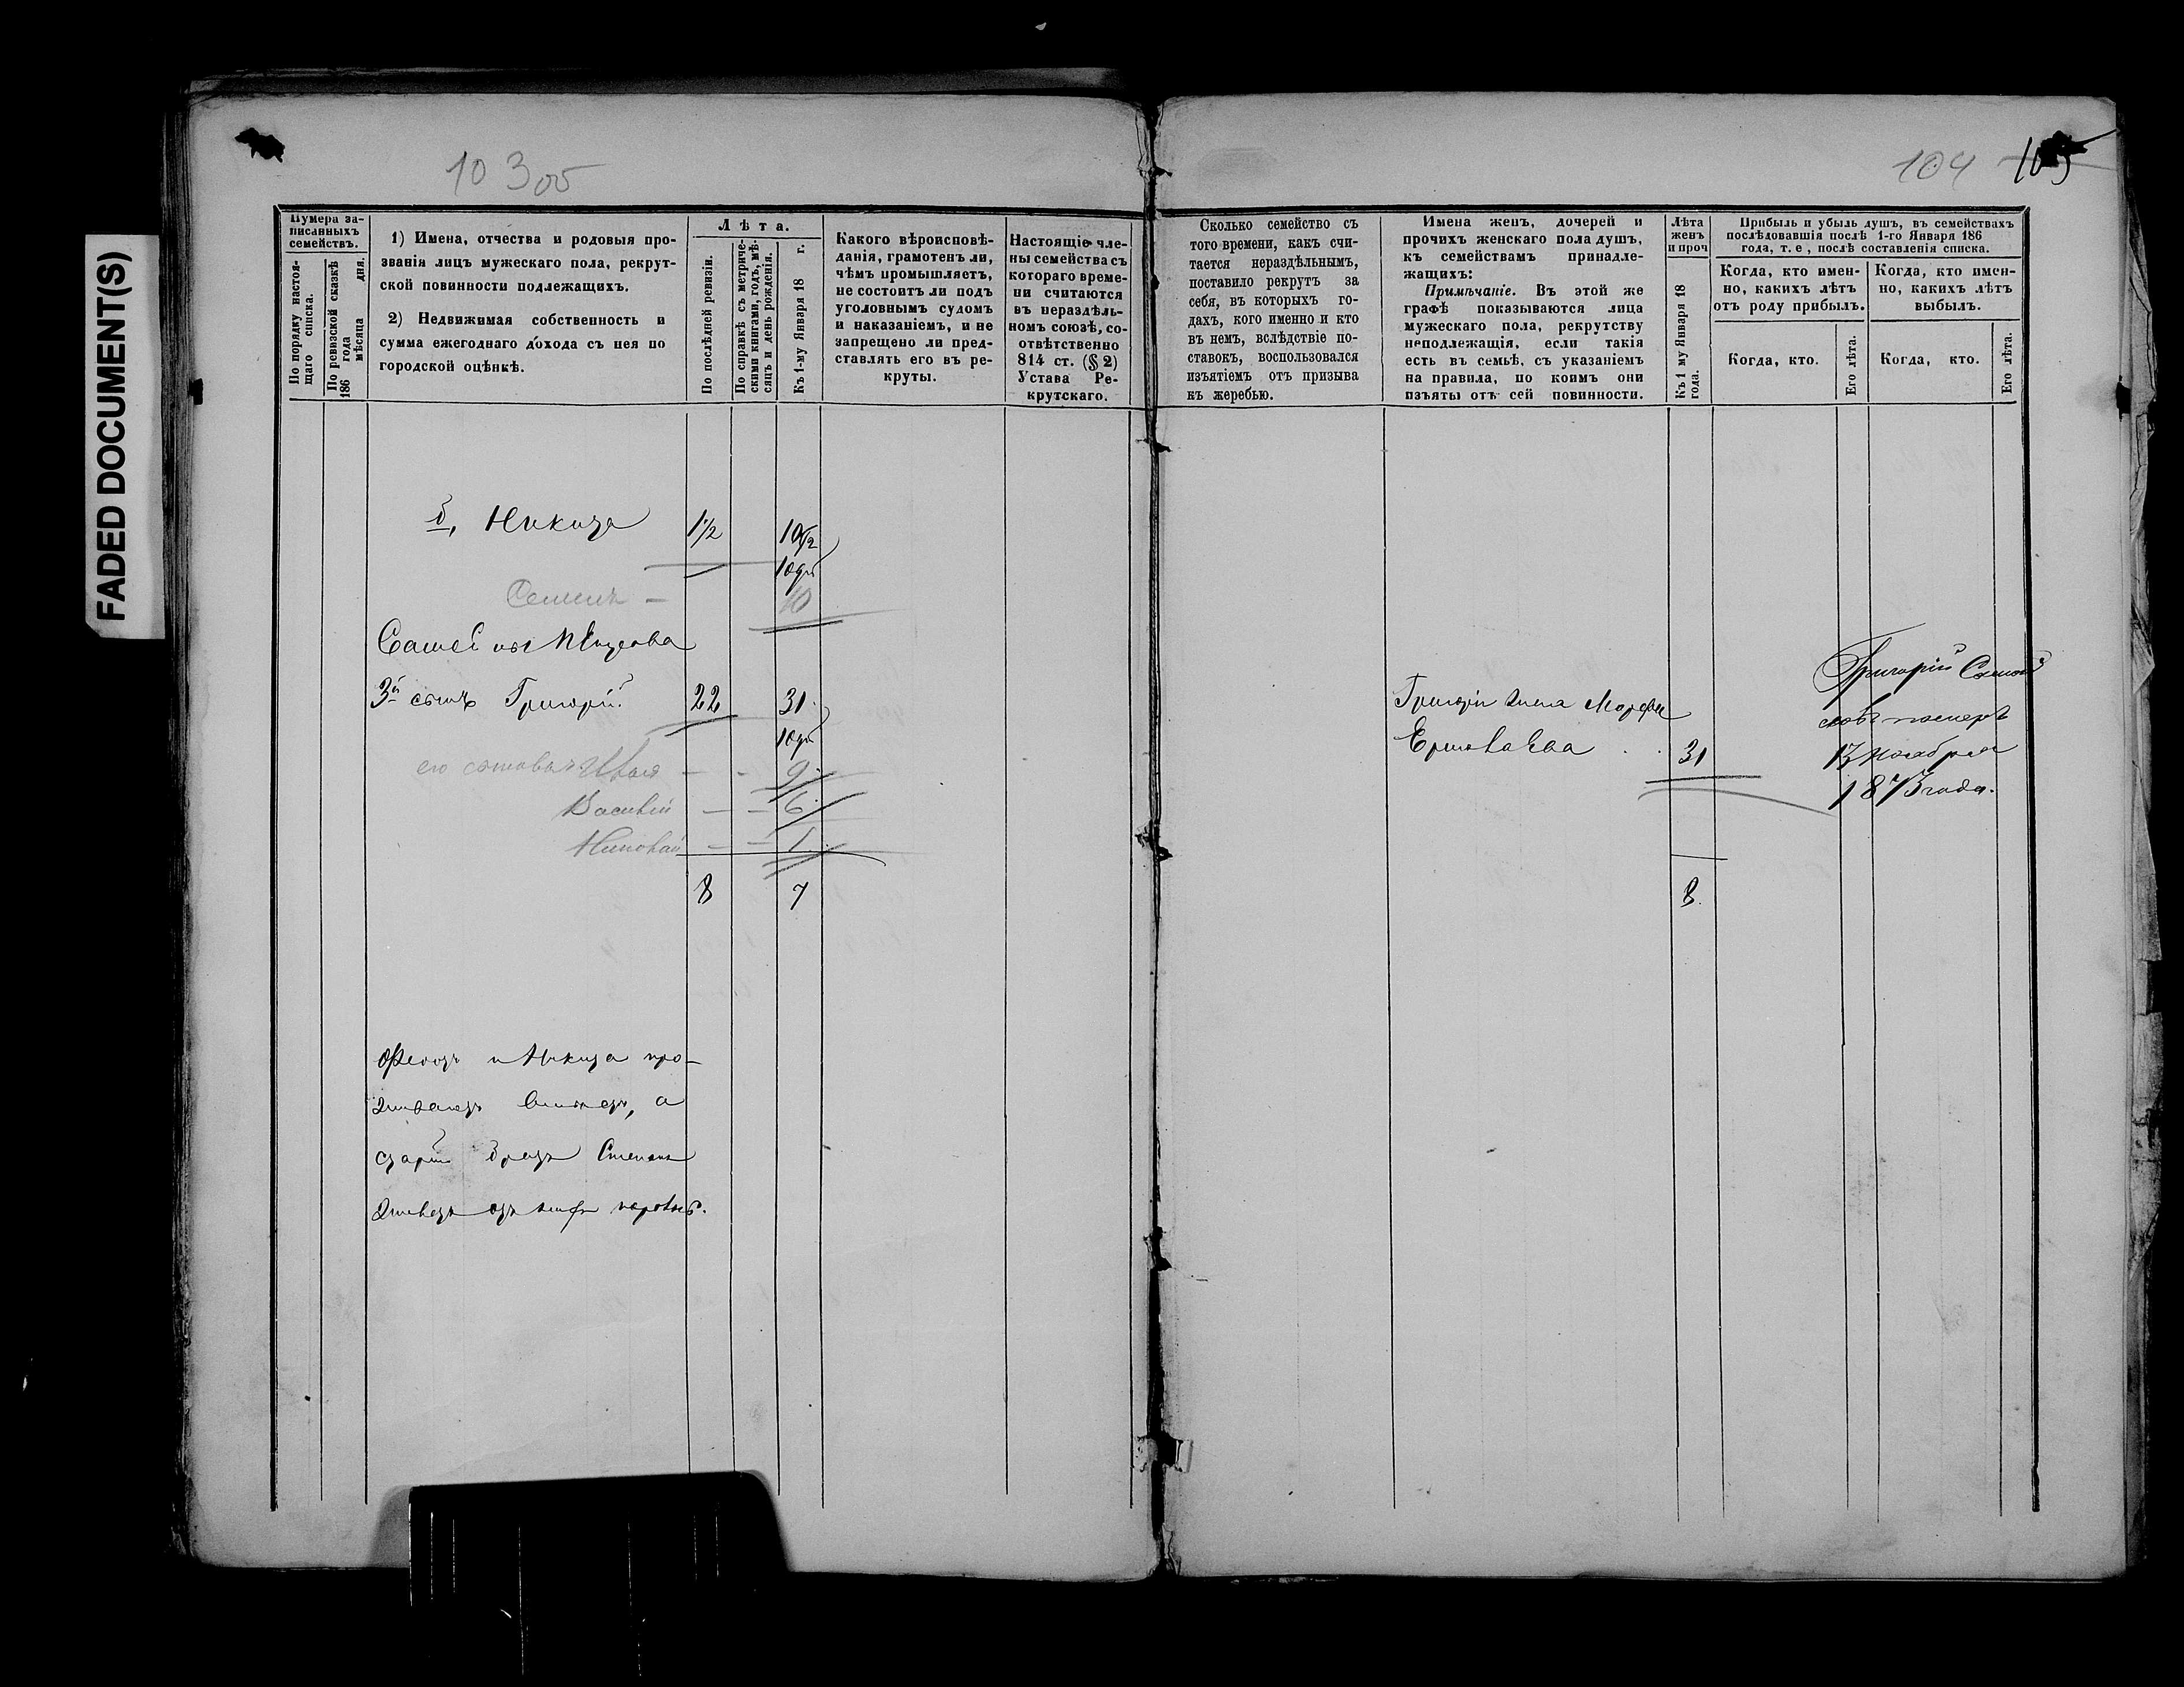 FADED DOCUMENT(S)
10 3об
104 105
Нумера за-
писанныхъ
семействъ.
По порядку настоя-
щаго списка.
По ревизской сказкѣ
186 года мѣсяца дня.
1) Имена, отчества и родовыя про-
званія лицъ мужескаго пола, рекрут-
ской повинности подлежащихъ.
2) Недвижимая собственность и
сумма ежегоднаго дохода съ нея по
городской оцѣнкѣ.
Лѣта.
По послѣдней ревизіи.
По справкѣ съ метриче-
скими книгами, годъ, мѣ-
сяцъ и день рожденія.
Къ 1-му Января 18 г.
Какого вѣроисповѣ-
данія, грамотенъ ли,
чѣмъ промышляетъ,
не состоитъ ли подъ
уголовнымъ судомъ
и наказаніемъ, и не
запрещено ли пред-
ставлять его въ ре-
круты.
Настоящіе чле-
ны семейства съ
котораго време-
ни считаются
въ нераздѣль-
номъ союзѣ, со-
отвѣтственно
814 ст. (§ 2)
Устава Ре-
крутскаго.
Сколько семейство съ
того времени, какъ счи-
тается нераздѣльнымъ,
поставило рекрутъ за
себя, въ которыхъ го-
дахъ, кого именно и кто
въ немъ, вслѣдствіе по-
ставокъ, воспользовался
изъятіемъ отъ призыва
къ жеребью.
Имена женъ, дочерей и
прочихъ женскаго пола душъ,
къ семействамъ принадле-
жащихъ:
Примѣчаніе. Въ этой же
графѣ показываются лица
мужескаго пола, рекрутству
неподлежащія, если такія
есть въ семьѣ, съ указаніемъ
на правила, по коимъ они
изъяты отъ сей повинности.
Лѣта
женъ
и проч
Къ 1 му Января 18
года.
Прибыль и убыль душъ, въ семействахъ
послѣдовавшія послѣ 1-го Января 186
года, т. е, послѣ составленія списка.
Когда, кто имен-
но, какихъ лѣтъ
отъ роду прибылъ.
Когда, кто имен-
но, какихъ лѣтъ
выбылъ.
Когда, кто.
Его лѣта.
Когда, кто.
Его лѣта.
б, Никита 1 1/2 10 1/2
Семенъ — 10
3й сынъ Григорій 22 31
его сыновья Илья — 9
Василій — 6
Николай — 1
8 7
Григорія жена Марфа
31
8.
Григорій
померъ
13 Ноября
1873 года.
и Никита про-
а
старш братъ Степанъ